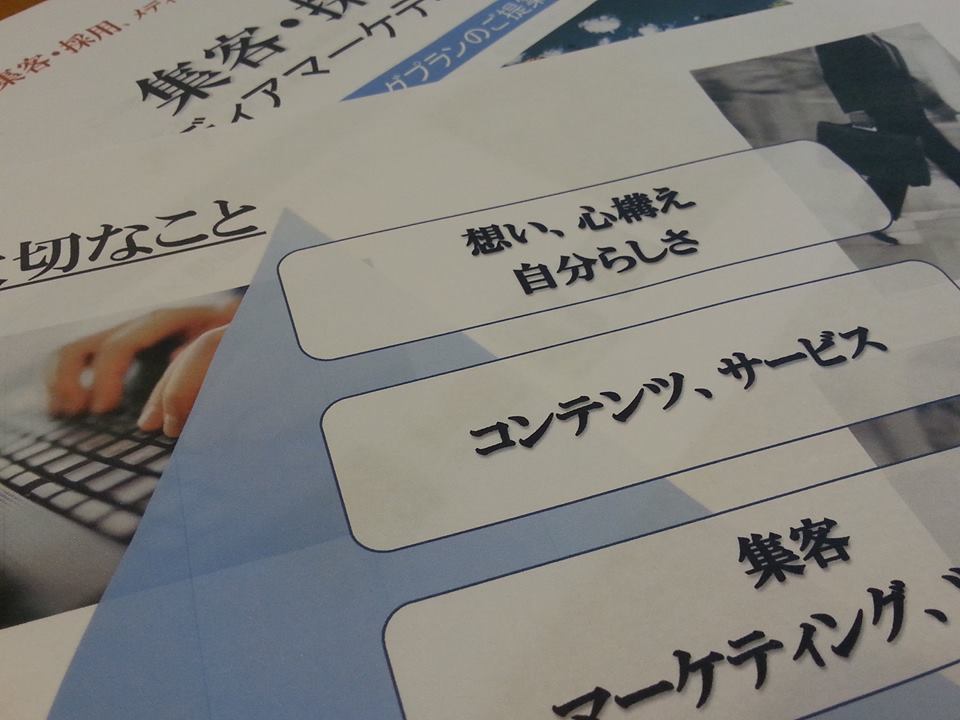 集客・採用、メディ
集客・採
ディアマーケテ
グプランのご提案
切なこと
想い、心構え
自分らしさ
コンテンツ、サービス
集客
マーケティング、